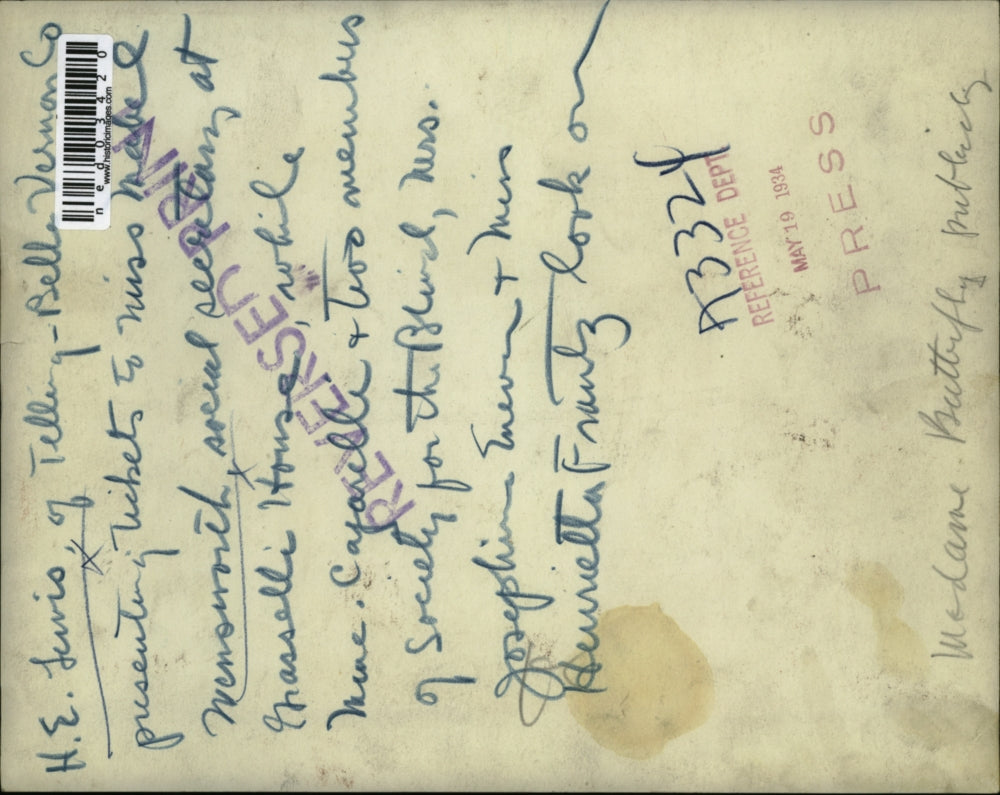 H.E. Lewis of Telling-Belle Vernon Co
presenting tickets to Miss Mabel
social secretary at
Grasselli House, while
Mme. & two members
of Society for the Blind, Mrs.
Josephine & Miss
Henrietta Frantz look on
REVERSED PRINT
www.historicimages.com
n e d 0 3 4 2 0
A3324
REFERENCE DEPT
MAY 19 1934
PRESS
Madame Butterfly publicity